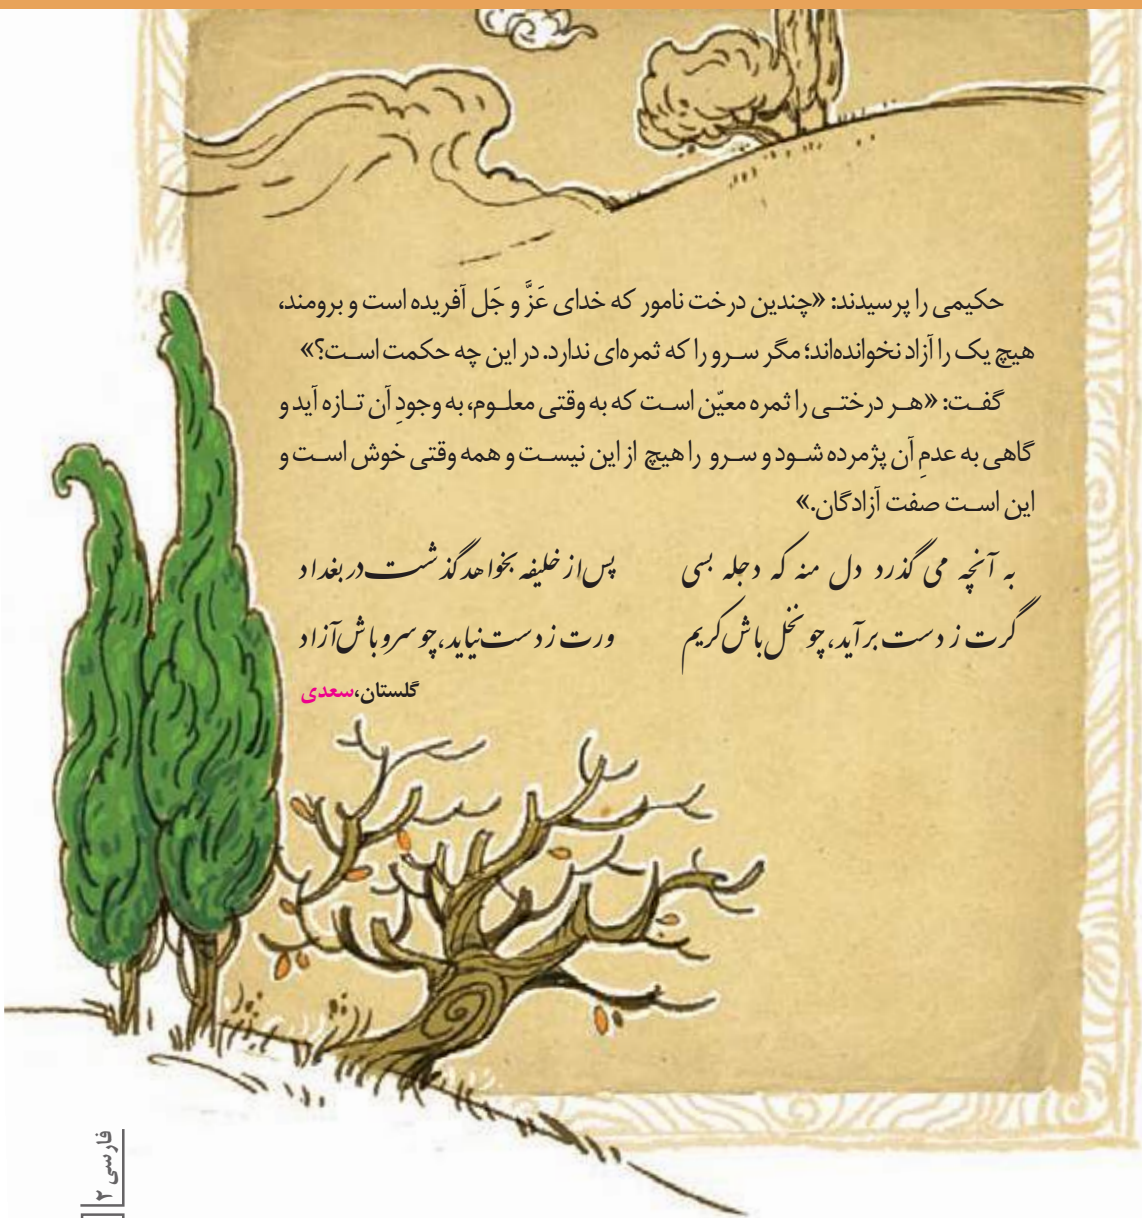 حکیمی را پرسیدند: «چندین درخت نامور که خدای عَزَّ و جَل آفریده است و برومند،
هیچ یک را آزاد نخوانده‌اند؛ مگر سرو را که ثمره‌ای ندارد. در این چه حکمت است؟»
گفت: «هر درختی را ثمره معیّن است که به وقتی معلوم، به وجودِ آن تازه آید و
گاهی به عدمِ آن پژمرده شود و سرو را هیچ از این نیست و همه وقتی خوش است و
این است صفت آزادگان.»
به آنچه می گذرد دل منه که دجله بسی پس از خلیفه بخواهد گذشت در بغداد
گرت ز دست برآید، چو نخل باش کریم ورت ز دست نیاید، چو سرو باش آزاد
گلستان، سعدی
فارسی ۲